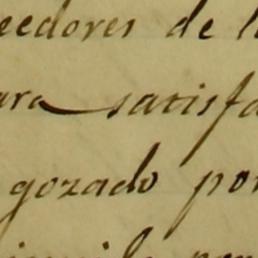 eedores de l
ara satisfa
gozado por